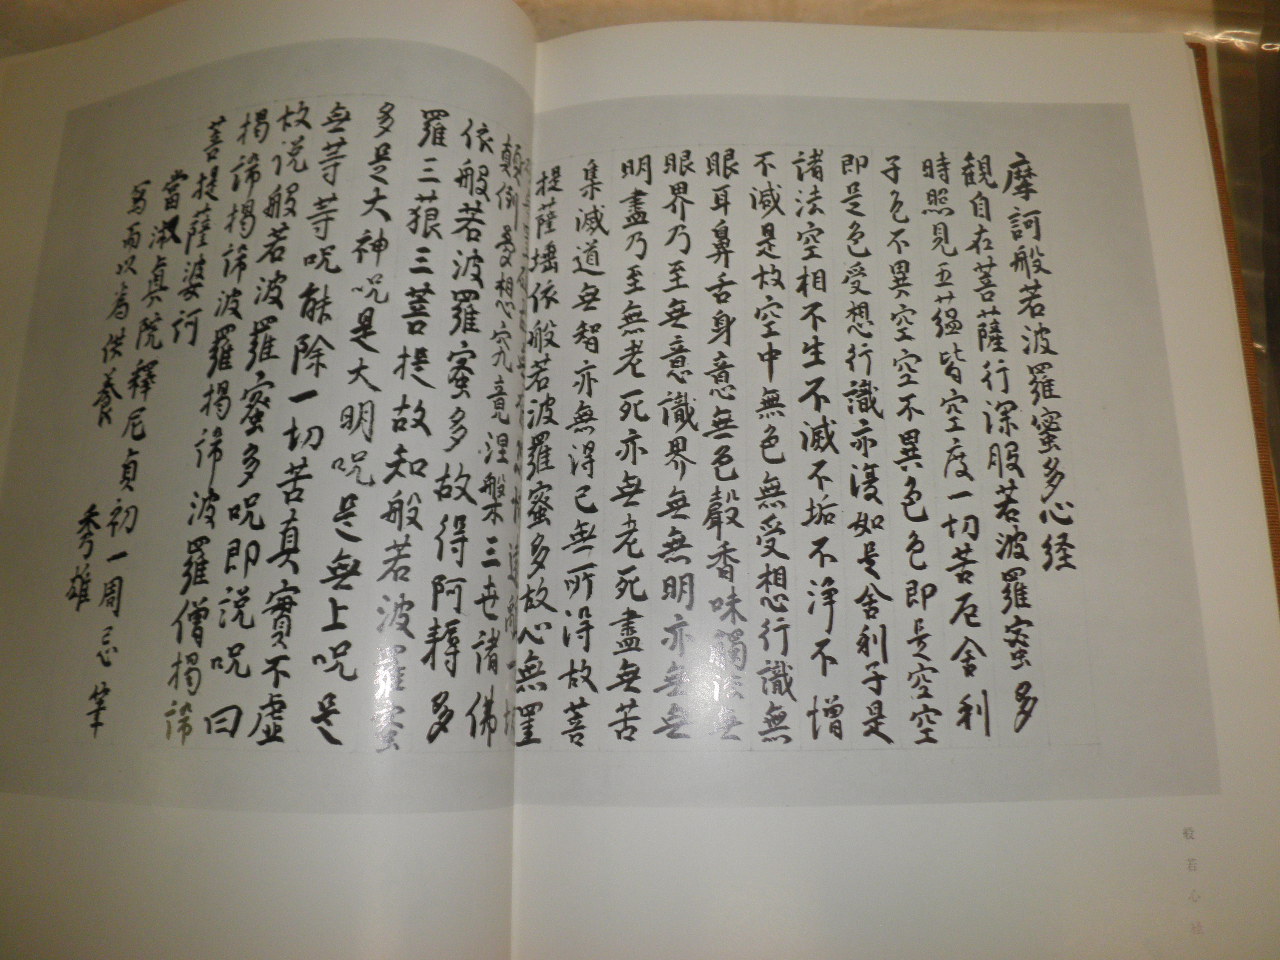 摩訶般若波羅蜜多心経
観自在菩薩行深般若波羅蜜多
時照見五蘊皆空度一切苦厄舎利
子色不異空空不異色色即是空空
即是色受想行識亦復如是舎利子是
諸法空相不生不滅不垢不浄不増
不減是故空中無色無受想行識無
眼耳鼻舌身意無色聲香味觸法無
眼界乃至無意識界無無明亦無無
明盡乃至無老死亦無老死盡無苦
集滅道無智亦無得已無所得故菩
提薩埵依般若波羅蜜多故心無罣
顛倒夢想究竟涅槃三世諸佛
依般若波羅蜜多故得阿耨多
羅三藐三菩提故知般若波羅蜜
多是大神呪是大明呪是無上呪是
無等等呪能除一切苦真實不虚
故説般若波羅蜜多呪即説呪曰
揭諦揭諦波羅揭諦波羅僧揭諦
菩提薩婆訶
當淑真院釋尼貞初一周忌筆
寫而以為供養
秀雄
般若心経